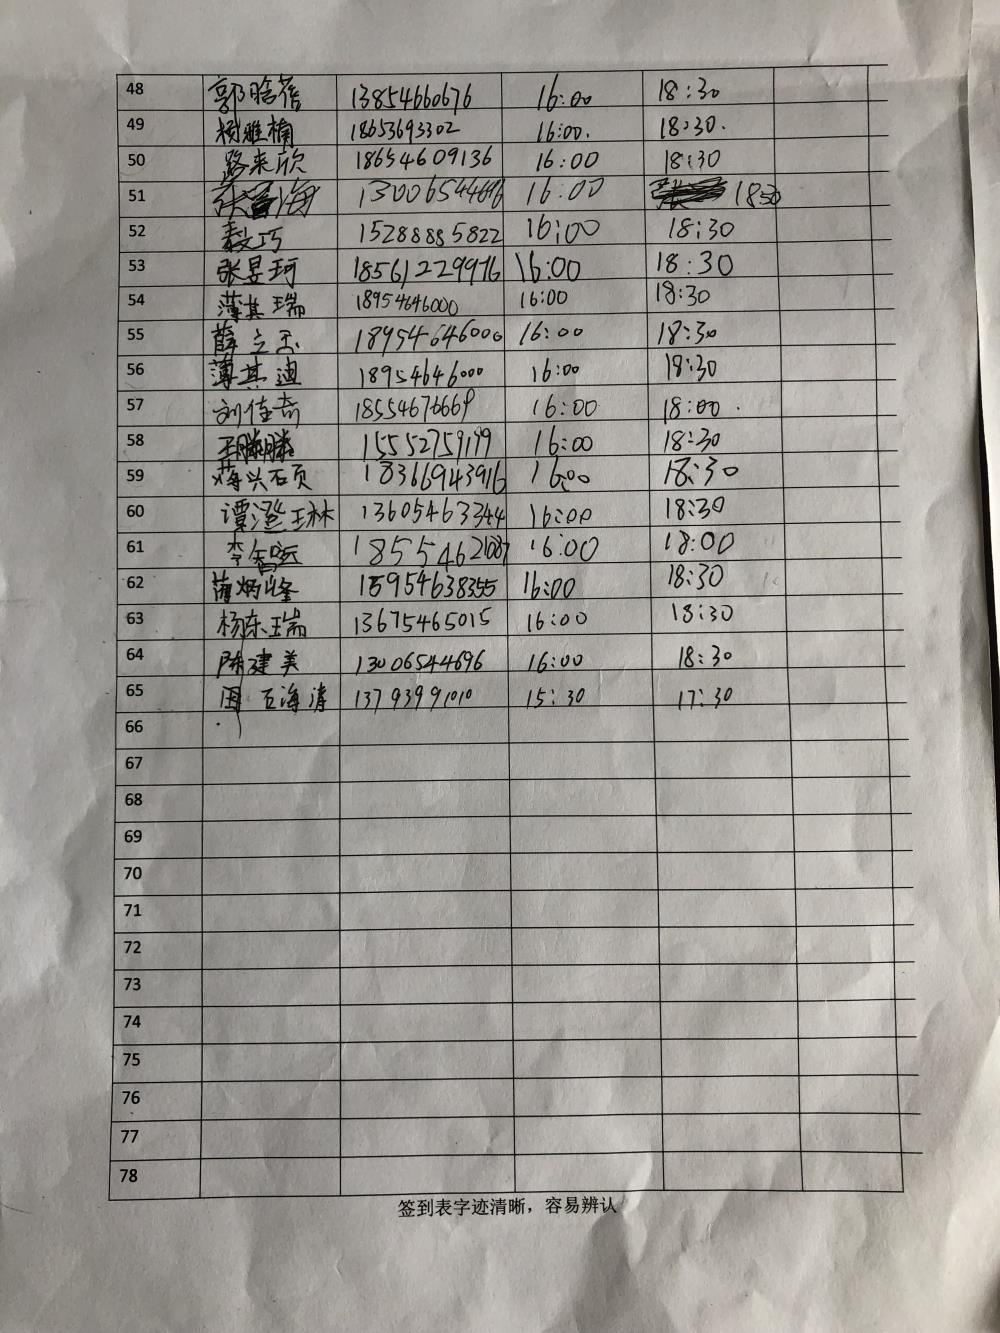 48 郭晗蓓 13854660676 16:00 18:30
49 杨雅楠 18653693302 16:00. 18:30.
50 路来欣 18654609136 16:00 18:30
51 张海 16:00 18:30
52 袁巧 15288885822 16:00 18:30
53 张昱珂 18561229976 16:00 18:30
54 薄其瑞 18954646000 16:00 18:30
55 薛立玉 18954646000 16:00 18:30
56 薄其迪 18954646000 16:00 18:30
57 刘佳奇 18554676669 16:00 18:00.
58 王腾腾 15552759199 16:00 18:30
59 蒋兴硕 18366943916 16:00 18:30
60 谭澄琳 13605463344 16:00 18:30
61 李智远 16:00 18:00
62 薄炳峰 15954638355 16:00 18:30
63 杨东瑞 13675465015 16:00 18:30
64 陈建美 13006544696 16:00 18:30
65 石海涛 13793991010 15:30 17:30
66
67
68
69
70
71
72
73
74
75
76
77
78
签到表字迹清晰，容易辨认